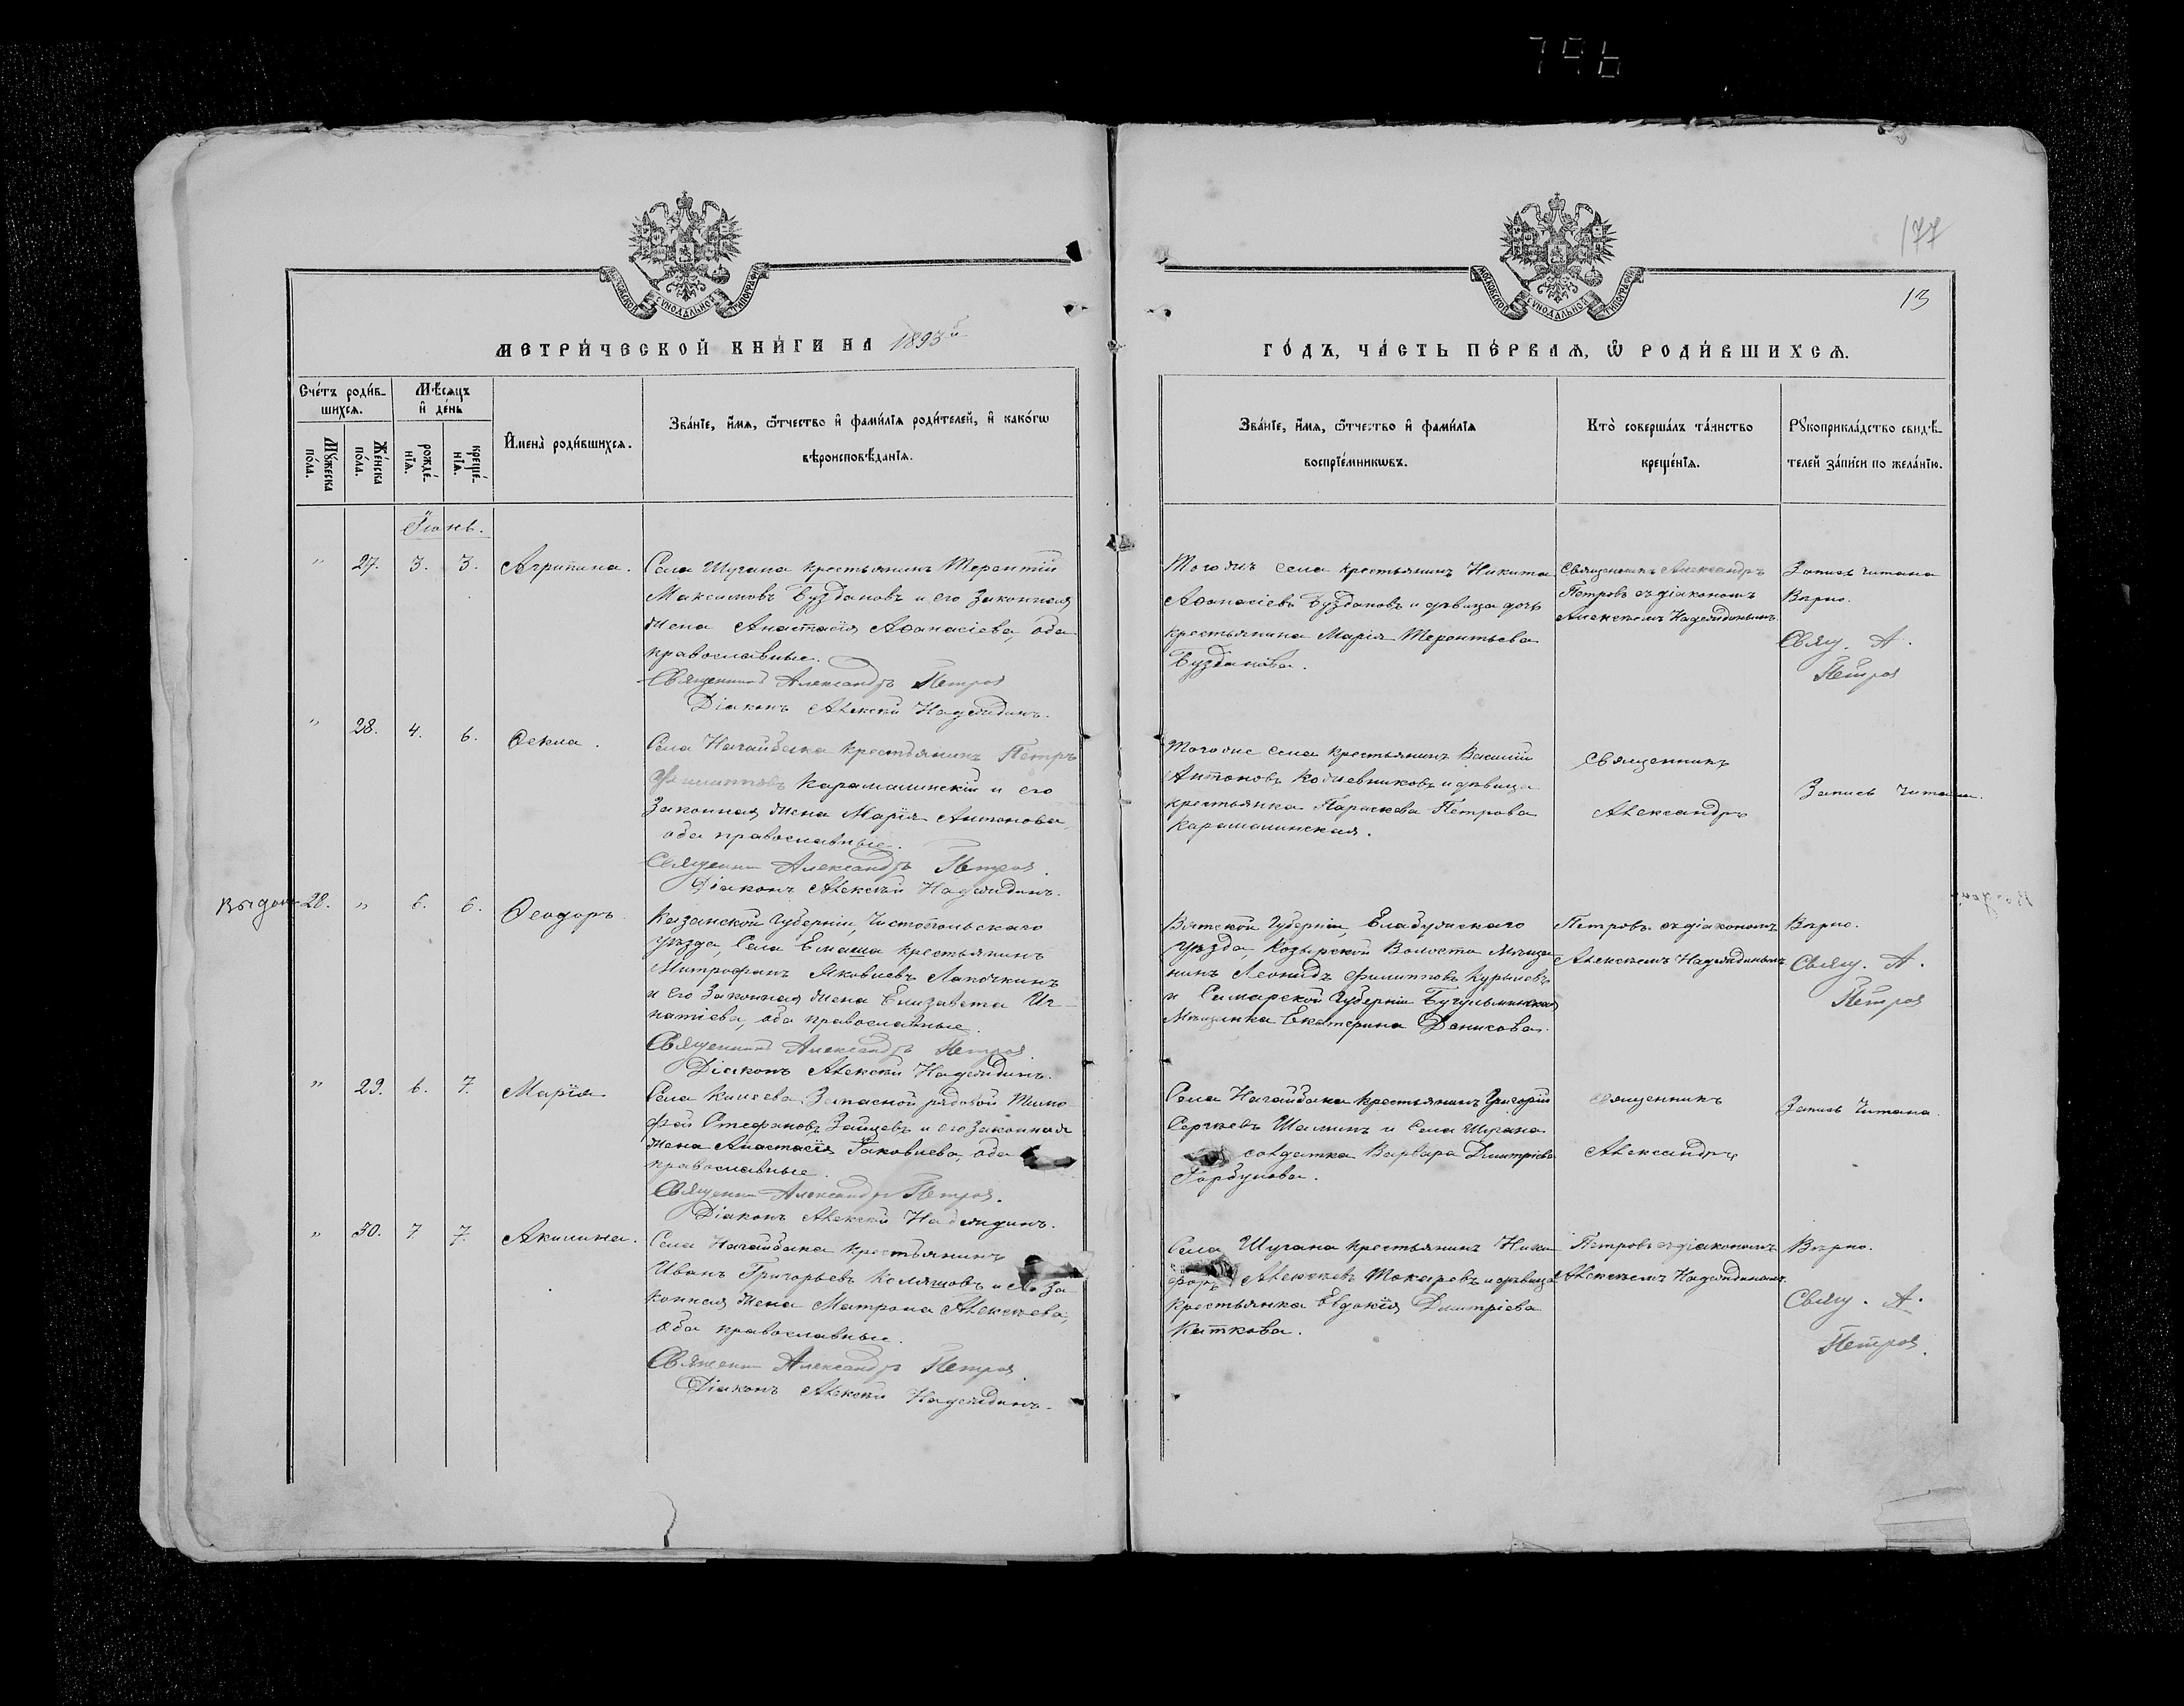 796
177
13
МОСКОВСКОЙ СУНОДАЛЬНОЙ ТИПОГРАФІИ
МОСКОВСКОЙ СУНОДАЛЬНОЙ ТИПОГРАФІИ
МЕТРИ́ЧЕСКОЙ КНИ́ГИ НА 1893й
ГО́ДЪ, ЧА́СТЬ ПЕ́РВАѦ, Ѡ РОДИ́ВШИХСѦ.
Сче́тъ роди́в-
шихсѧ.
Мѣ́сѧцъ
и де́нь
Мꙋ́жеска
по́ла.
Же́нска
по́ла.
рожде́-
нїѧ.
креще́-
нїѧ.
И́мена̀ роди́вшихсѧ.
Зва́нїе, и́мѧ, ѻ́тчество и фами́лїѧ роди́телей, и како́гѡ
вѣроисповѣ́данїѧ.
Зва́нїе, и́мѧ, ѻ́тчество и фами́лїѧ
воспрїе́мникѡвъ.
Кто̀ соверша́лъ та́инство
креще́нїѧ.
Рꙋкоприкла́дство свидѣ́-
телей за́писи по жела́нїю.
Іюнь.
" 27. 3. 3. Агрипина.
Села Шугана крестьянинъ Терентій
Максимовъ Бузdановъ и его законная
жена Анастасія Аѳанасіева, оба
православные.
Священникъ Александръ Петровъ
Діаконъ Алексѣй Надеждинъ.
Тогожъ села крестьянинъ Никита
Аѳанасіевъ Буздановъ и дѣвица дочь
крестьянина Марія Терентьева
Бузданова.
Священникъ Александръ
Петровъ съ діакономъ
Алексѣемъ Надеждинымъ.
Запись читана
Вѣрно.
Свящ. А.
Петровъ
" 28. 4. 6. Ѳекла.
Села Нагайбака крестьянинъ Петръ
Филипповъ Карамалинскій и его
законная жена Марія Антонова,
оба православные.
Священникъ Александръ Петровъ.
Діаконъ Алексѣй Надеждинъ.
Тогоже села крестьянинъ Василій
Антоновъ Кожевниковъ и дѣвица
крестьянка Параскева Петрова
Карамалинская.
Священникъ
Александръ
Запись читана.
Выдан 28. " 6. 6. Ѳеодоръ
Казанской Губерніи, Чистопольскаго
уѣзда, Села Елаша крестьянинъ
Митрофанъ Яковлевъ Лапочкинъ
и его законная жена Елизавета Иг-
натіева, оба православные.
Священникъ Александръ Петровъ.
Діаконъ Алексѣй Надеждинъ.
Вятской Губерніи, Елабужскаго
уѣзда, Козырской Волости Мѣща
нинъ Леонидъ Филипповъ Курылевъ
и Самарской Губерніи Бугульминская
Мѣщанка Екатерина Денисова.
Петровъ съ діакономъ
Алексѣемъ Надеждинымъ
Вѣрно.
Свящ. А.
Петровъ
" 29. 6. 7. Марія
Села Килеева Запасной рядовой Тимо-
фей Стефановъ Зайцевъ и его законная
жена Анастасія Іаковлева, оба
православные.
Священникъ Александръ Петровъ.
Діаконъ Алексѣй Надеждинъ.
Села Нагайбака крестьянинъ Григорій
Сергѣевъ Шаминъ и Села Шугана
солдатка Варвара Димитріева
Горбунова.
Священникъ
Александръ
Запись Читана.
" 30. 7 7. Акилина.
Села Нагайбака крестьянинъ
Иванъ Григорьевъ Келяшовъ и его за
конная жена Матрона Алексѣева,
оба православные.
Священникъ Александръ Петровъ.
Діаконъ Алексѣй Надеждинъ.
Села Шугана крестьянинъ Ники
форъ Алексѣевъ Токаревъ и дѣвица
крестьянка Евдокія Димитріева
Каткова.
Петровъ съ діакономъ
Алексѣемъ Надеждинымъ.
Вѣрно.
Свящ. А.
Петровъ.